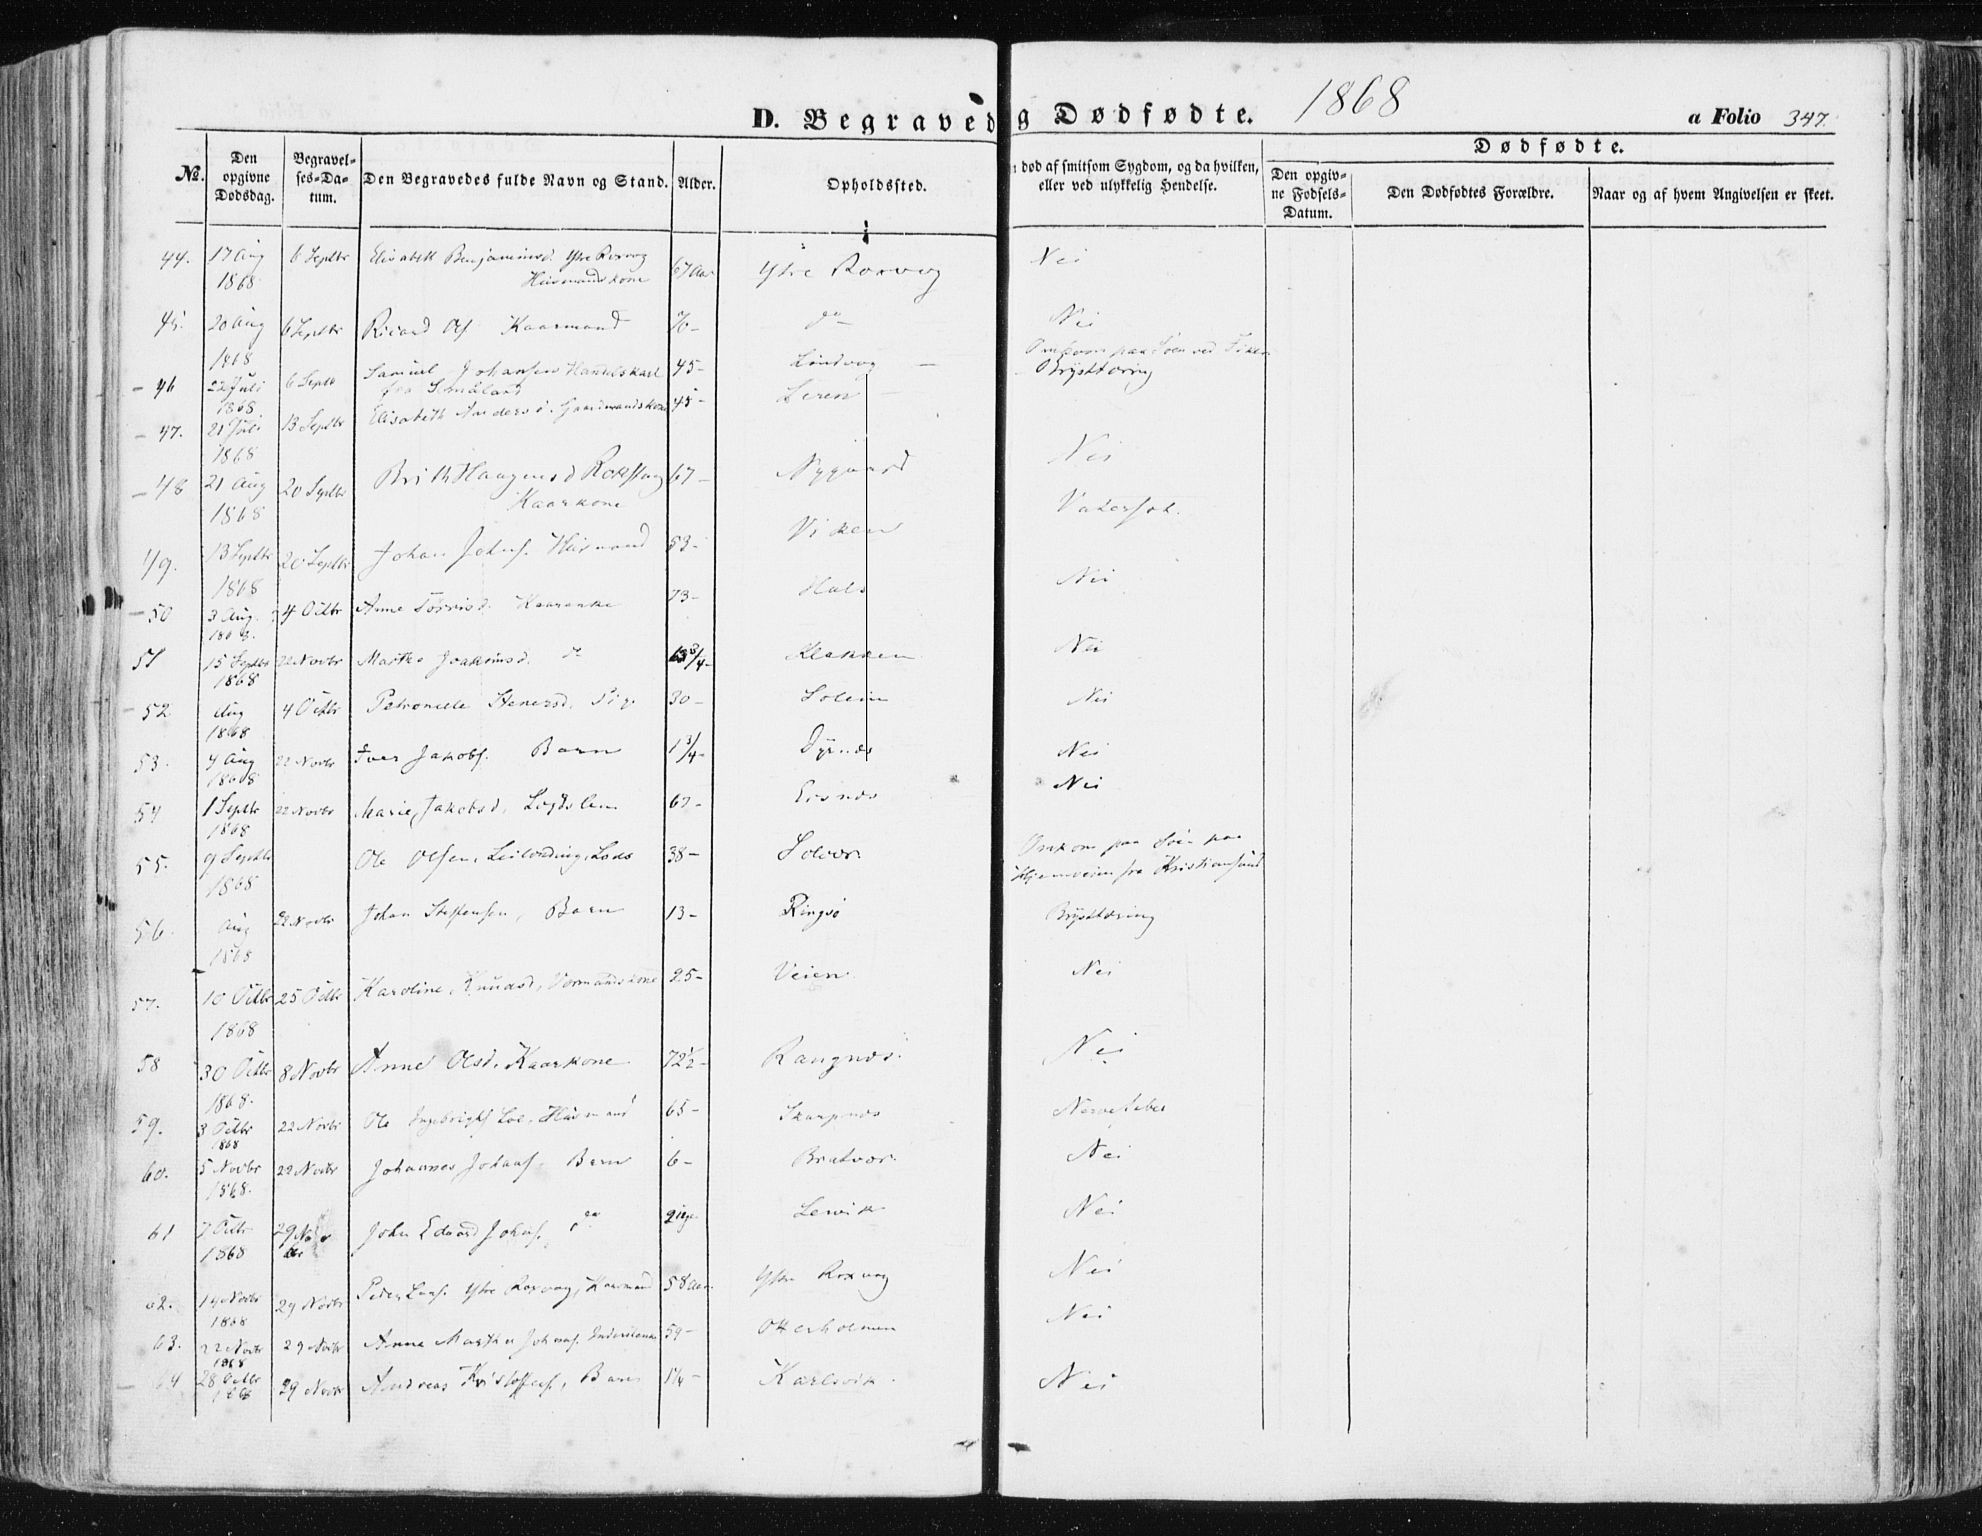 D. Begraved
g Dødfødte. 1868
a Folio 347.
No.
Den opgivne Dødsdag.
Begravelses-Datum.
Den Begravedes fulde Navn og Stand.
Alder.
Opholdssted.
n død af smitsom Sygdom, og da hvilken, eller ved ulykkelig Hendelse.
Dødfødte.
Den opgivne Fødsels-Datum.
Den Dødfødtes Forældre.
Naar og af hvem Angivelsen er skeet.
44. 17 Aug 1868 6 Septbr Elisabeth Benjaminsd. Ytre Roxvog Huusmandskone 67 Aar Ytre Roxvog Nei
45. 20 Aug 1868 6 Septbr Ricard Ols. Kaarmand 70- do Nei
46 22 Juli 1868 6 Septb Samuel Johansen Handelskarl fra Småland 45- Omkom paa Søen ved
47. 21 Juli 1868 13 Septbr Elisabeth Andersd. Gaardmandskone 45- Leren Brysttæring
48 21 Aug 1868 20 Septbr Brith Haagensd Kaarkone 67- Nygaard Nei
49. 13 Septbr 1868 20 Septbr Johan Johns. Huusmand 53- Viken Vatersot.
50 3 Aug. 1868. 4 Octbr Anne 73- Hals Nei
51 15 Septbr 1868 22 Novbr Marthe Joakimsd. do 63 3/4- Klakken Nei
52 Aug 1868 4 Octbr Petronelle Stenersd. Pige 30- Solem Nei
53. 4 Aug 1868 22 Novbr Iver Jakobs. Barn 1 3/4- Dyrnes Nei
54 1 Septbr 1868 22 Novbr Marie Jakobsd. Lægdslem 67- Ersnes Nei
55. 9 Septbr 1868 Ole Olsen, Leilænding, Lods 38- Solvær. Omkom paa Søen paa Hjemveien fra Kristiansund
56. Aug 1868 22 Novbr Johan Steffensen, Barn 13- Ringsø Brysttæring
57. 10 Octbr 1868 25 Octbr Karoline Knudsd, 25- Veien. Nei
58 30 Octbr 1868. 8 Novbr Anne Olsd. Kaarkone 72 1/2- Rangnes. Nei
59. 3 Octbr 1868 22 Novbr Ole Ingebrigts Huusmand 65- Skarpnes Nervefeber
60. 5 Novbr 1868. 22 Novbr Johannes Johans. Barn 6- Bratvær. Nei
61 7 Octbr 1868 29 Novbr John Edvard Johns. do Lervik Nei
62. 14 Novbr 1868 29 Novbr Peder Lars. Ytre Roxvog, Kaarmand 58 Aar. Ytre Roxvog Nei
63. 22 Novbr 1868 29 Novbr Anne Marthe Johans. 59- Otterholmen Nei
64 28 Octbr 1868 29 Novbr Andreas Kristoffers, Barn Karlsvik. Nei